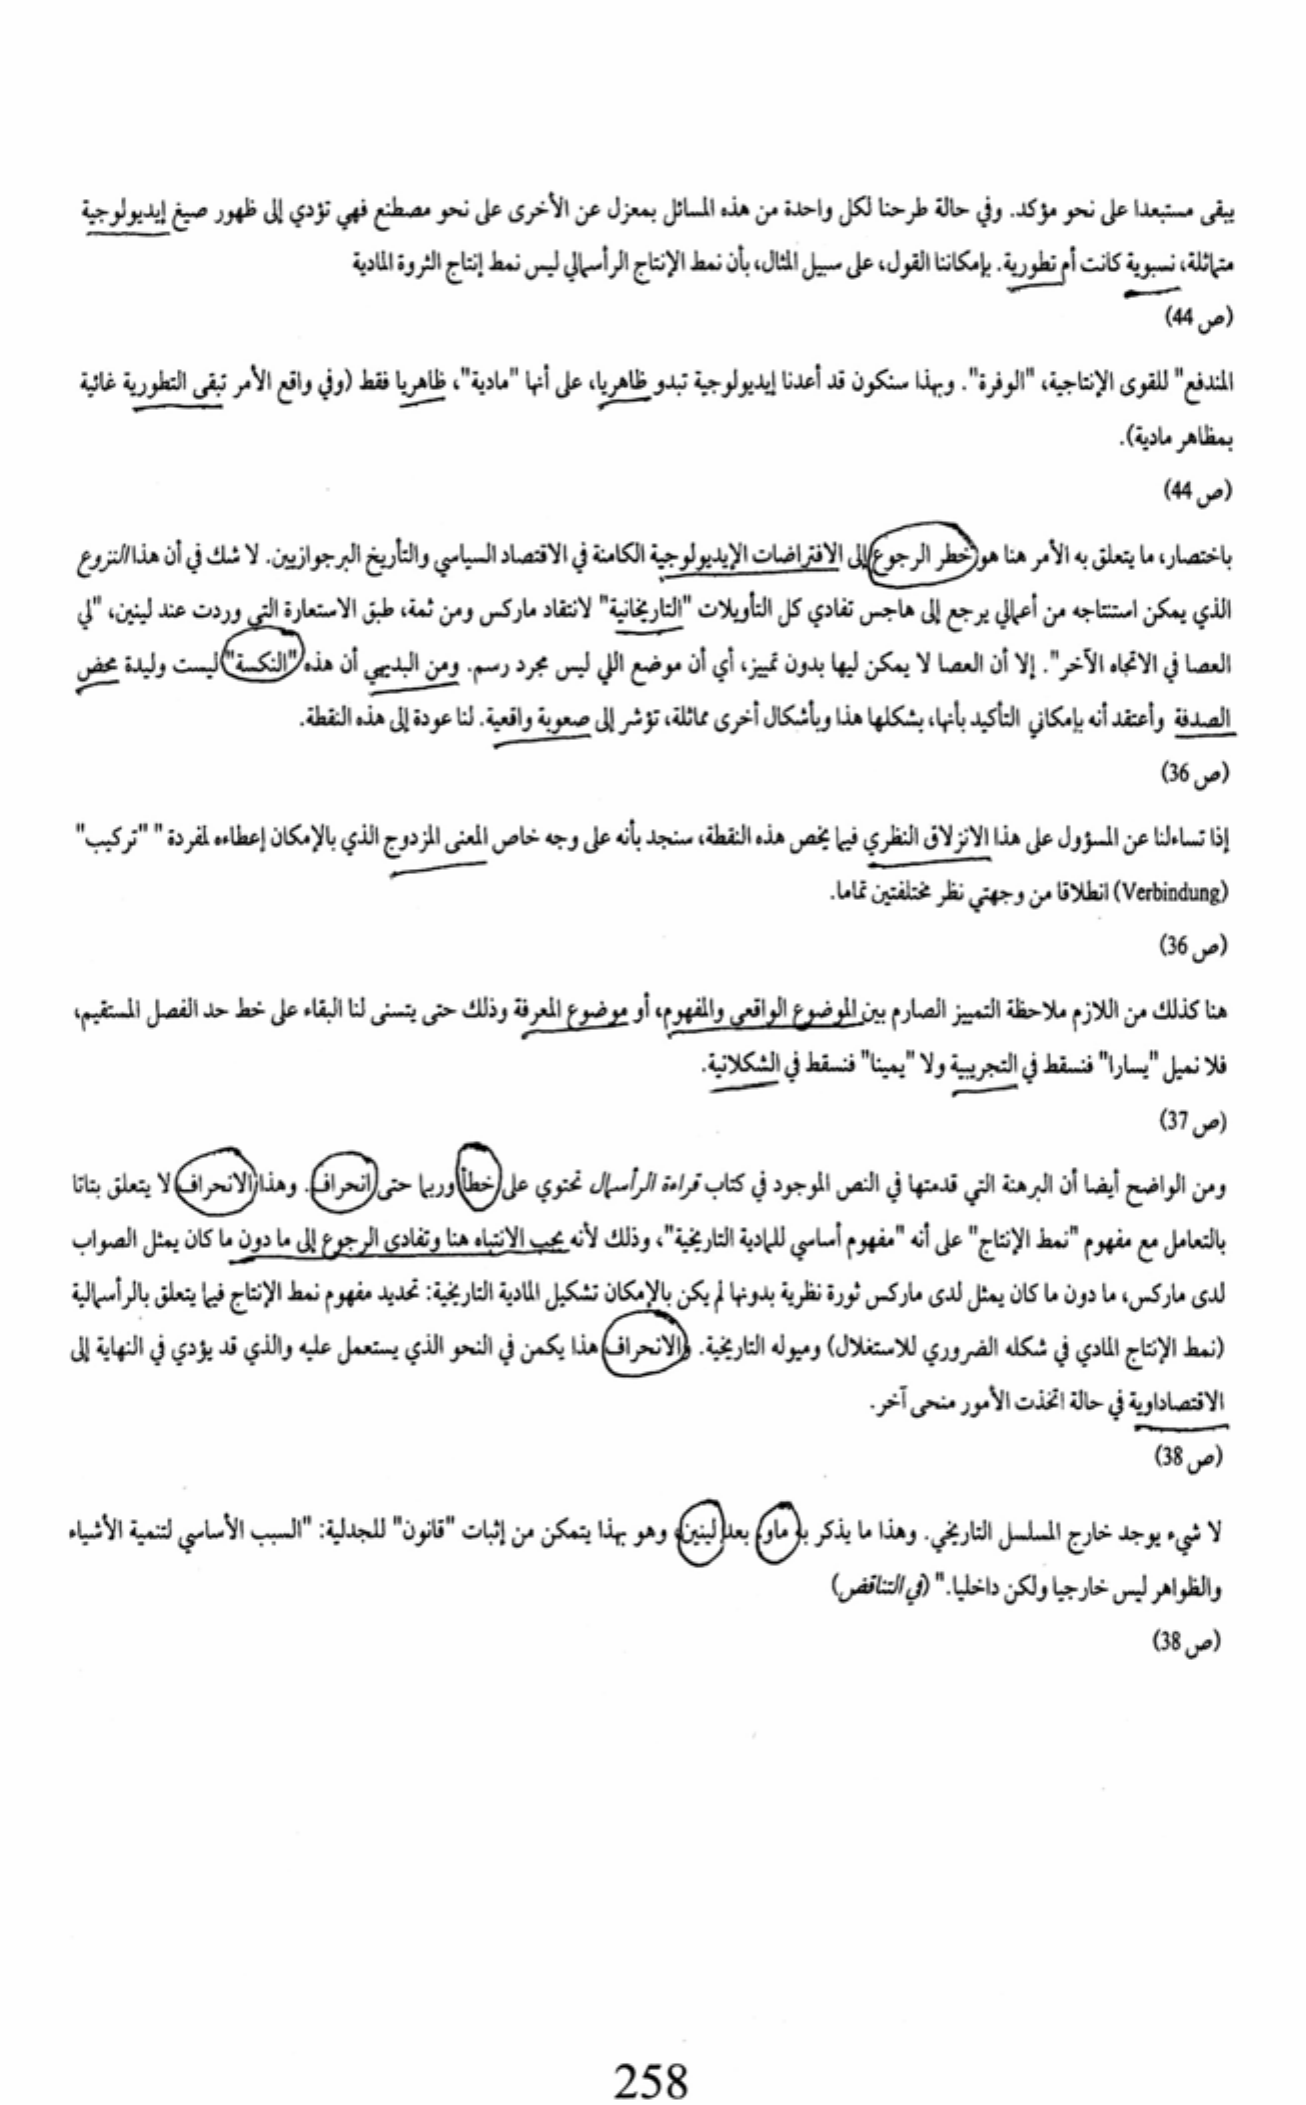 يبقى مستبعدا على نحو مؤكد. وفي حالة طرحنا لكل واحدة من هذه المسائل بمعزل عن الأخرى على نحو مصطنع فهي تؤدي إلى ظهور صيغ إيديولوجية
متماثلة، نسبوية كانت أم تطورية. بإمكاننا القول، على سبيل المثال، بأن نمط الإنتاج الرأسمالي ليس نمط إنتاج الثروة المادية
(ص 44)
المندفع" للقوى الإنتاجية، "الوفرة". وبهذا سنكون قد أعدنا إيديولوجية تبدو ظاهريا، على أنها "مادية"، ظاهريا فقط (وفي واقع الأمر تبقى التطورية غائية
بمظاهر مادية).
(ص 44)
باختصار، ما يتعلق به الأمر هنا هو خطر الرجوع إلى الافتراضات الإيديولوجية الكامنة في الاقتصاد السياسي والتأريخ البرجوازيين. لا شك في أن هذا النزوع
الذي يمكن استنتاجه من أعمالي يرجع إلى هاجس تفادي كل التأويلات "التاريخانية" لانتقاد ماركس ومن ثمة، طبق الاستعارة التي وردت عند لينين، "لي
العصا في الاتجاه الآخر". إلا أن العصا لا يمكن ليها بدون تمييز، أي أن موضع اللي ليس مجرد رسم. ومن البديهي أن هذه "النكسة" ليست وليدة محض
الصدفة وأعتقد أنه بإمكاني التأكيد بأنها، بشكلها هذا وبأشكال أخرى مماثلة، تؤشر إلى صعوبة واقعية. لنا عودة إلى هذه النقطة.
(ص 36)
إذا تساءلنا عن المسؤول على هذا الانزلاق النظري فيما يخص هذه النقطة، سنجد بأنه على وجه خاص المعنى المزدوج الذي بالإمكان إعطاءه لمفردة " "تركيب"
(Verbindung) انطلاقا من وجهتي نظر مختلفتين تماما.
(ص 36)
هنا كذلك من اللازم ملاحظة التمييز الصارم بين الموضوع الواقعي والمفهوم، أو موضوع المعرفة وذلك حتى يتسنى لنا البقاء على خط حد الفصل المستقيم،
فلا نميل "يسارا" فنسقط في التجريبية ولا "يمينا" فنسقط في الشكلانية.
(ص 37)
ومن الواضح أيضا أن البرهنة التي قدمتها في النص الموجود في كتاب قراءة الرأسمال تحتوي على خطأ وربما حتى انحراف. وهذا الانحراف لا يتعلق بتاتا
بالتعامل مع مفهوم "نمط الإنتاج" على أنه "مفهوم أساسي للمادية التاريخية"، وذلك لأنه يجب الانتباه هنا وتفادي الرجوع إلى ما دون ما كان يمثل الصواب
لدى ماركس، ما دون ما كان يمثل لدى ماركس ثورة نظرية بدونها لم يكن بالإمكان تشكيل المادية التاريخية: تحديد مفهوم نمط الإنتاج فيما يتعلق بالرأسمالية
(نمط الإنتاج المادي في شكله الضروري للاستغلال) وميوله التاريخية. والانحراف هذا يكمن في النحو الذي يستعمل عليه والذي قد يؤدي في النهاية إلى
الاقتصاداوية في حالة اتخذت الأمور منحى آخر.
(ص 38)
لا شيء يوجد خارج المسلسل التاريخي. وهذا ما يذكر به ماو، بعد لينين، وهو بهذا يتمكن من إثبات "قانون" للجدلية: "السبب الأساسي لتنمية الأشياء
والظواهر ليس خارجيا ولكن داخليا." (في التناقض)
(ص 38)
258